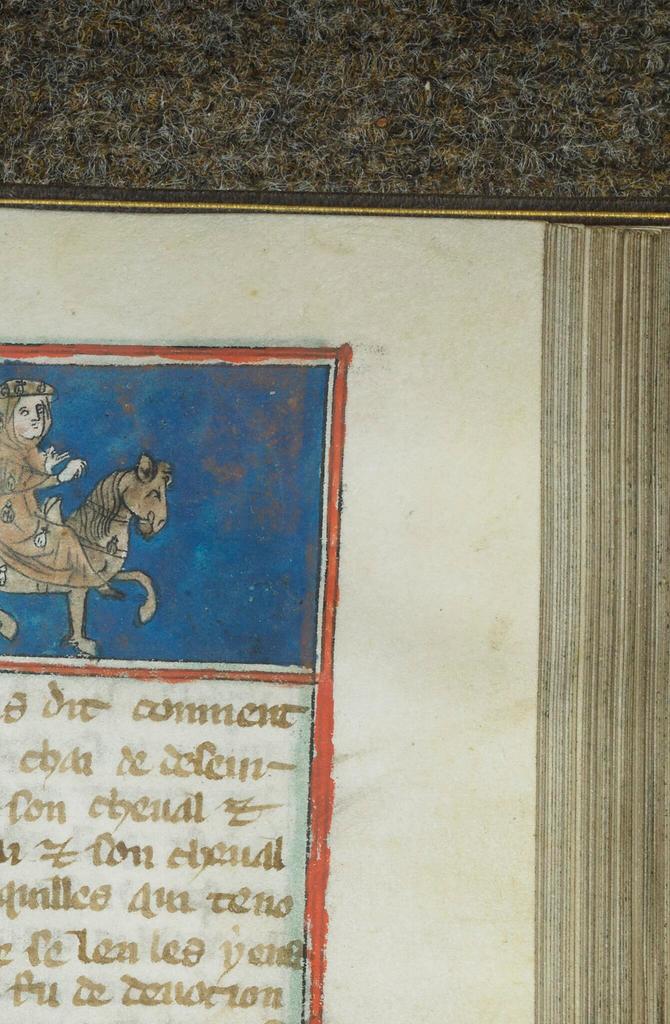 s dit comment
chai de deseur-
son cheual ⁊
ui ⁊ son cheual
quilles qui teno
se len les yeus
fu de deuotion